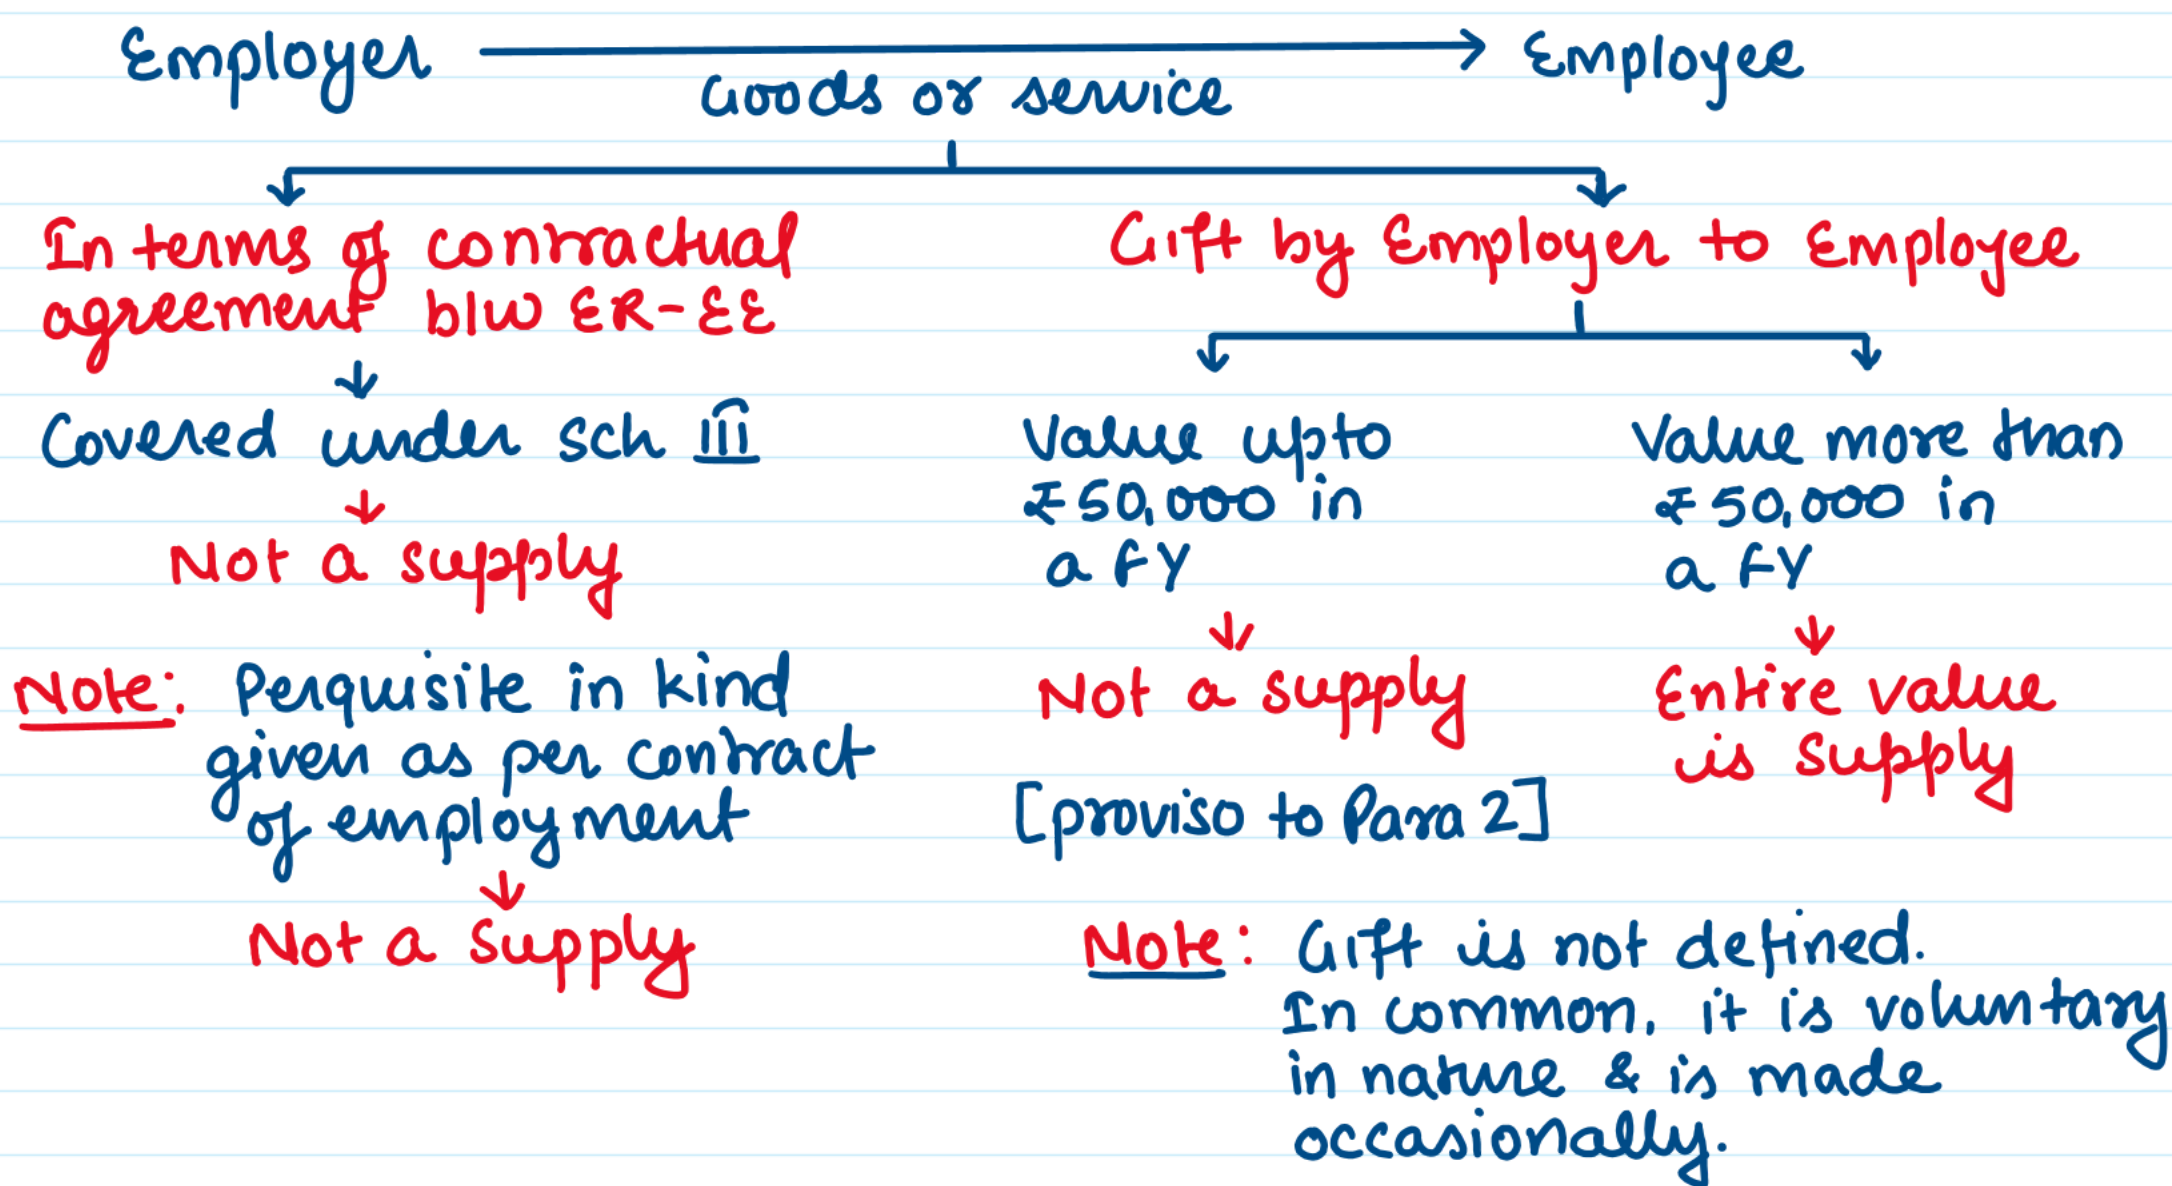 Employer → Employee
Goods or service
In terms of contractual
agreement b/w ER-EE
Covered under sch III
Not a supply
Note: Perquisite in kind
given as per contract
of employment
Not a supply
Gift by Employer to Employee
Value upto
₹50,000 in
a FY
Not a supply
[proviso to Para 2]
Value more than
₹50,000 in
a FY
Entire value
is supply
Note: Gift is not defined.
In common, it is voluntary
in nature & is made
occasionally.